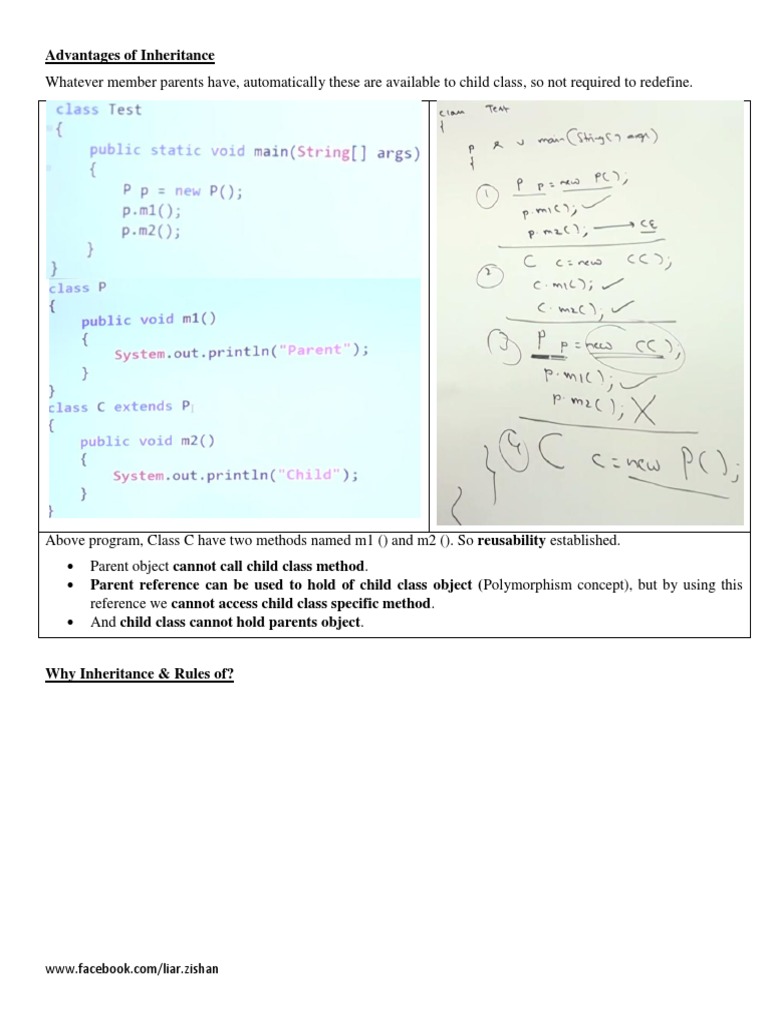 Advantages of Inheritance
Whatever member parents have, automatically these are available to child class, so not required to redefine.
class Test
{
public static void main(String[] args)
{
P p = new P();
p.m1();
p.m2();
}
}
class P
{
public void m1()
{
System.out.println("Parent");
}
}
class C extends P
{
public void m2()
{
System.out.println("Child");
}
}
class Test
{
p s v main(String[] args)
{
1 P p = new P();
p.m1(); ✓
p.m2(); → CE
2 C c = new C();
c.m1(); ✓
c.m2(); ✓
3 P p = new C();
p.m1(); ✓
p.m2(); X
4 C c = new P();
}
}
Above program, Class C have two methods named m1 () and m2 (). So reusability established.
• Parent object cannot call child class method.
• Parent reference can be used to hold of child class object (Polymorphism concept), but by using this
reference we cannot access child class specific method.
• And child class cannot hold parents object.
Why Inheritance & Rules of?
www.facebook.com/liar.zishan